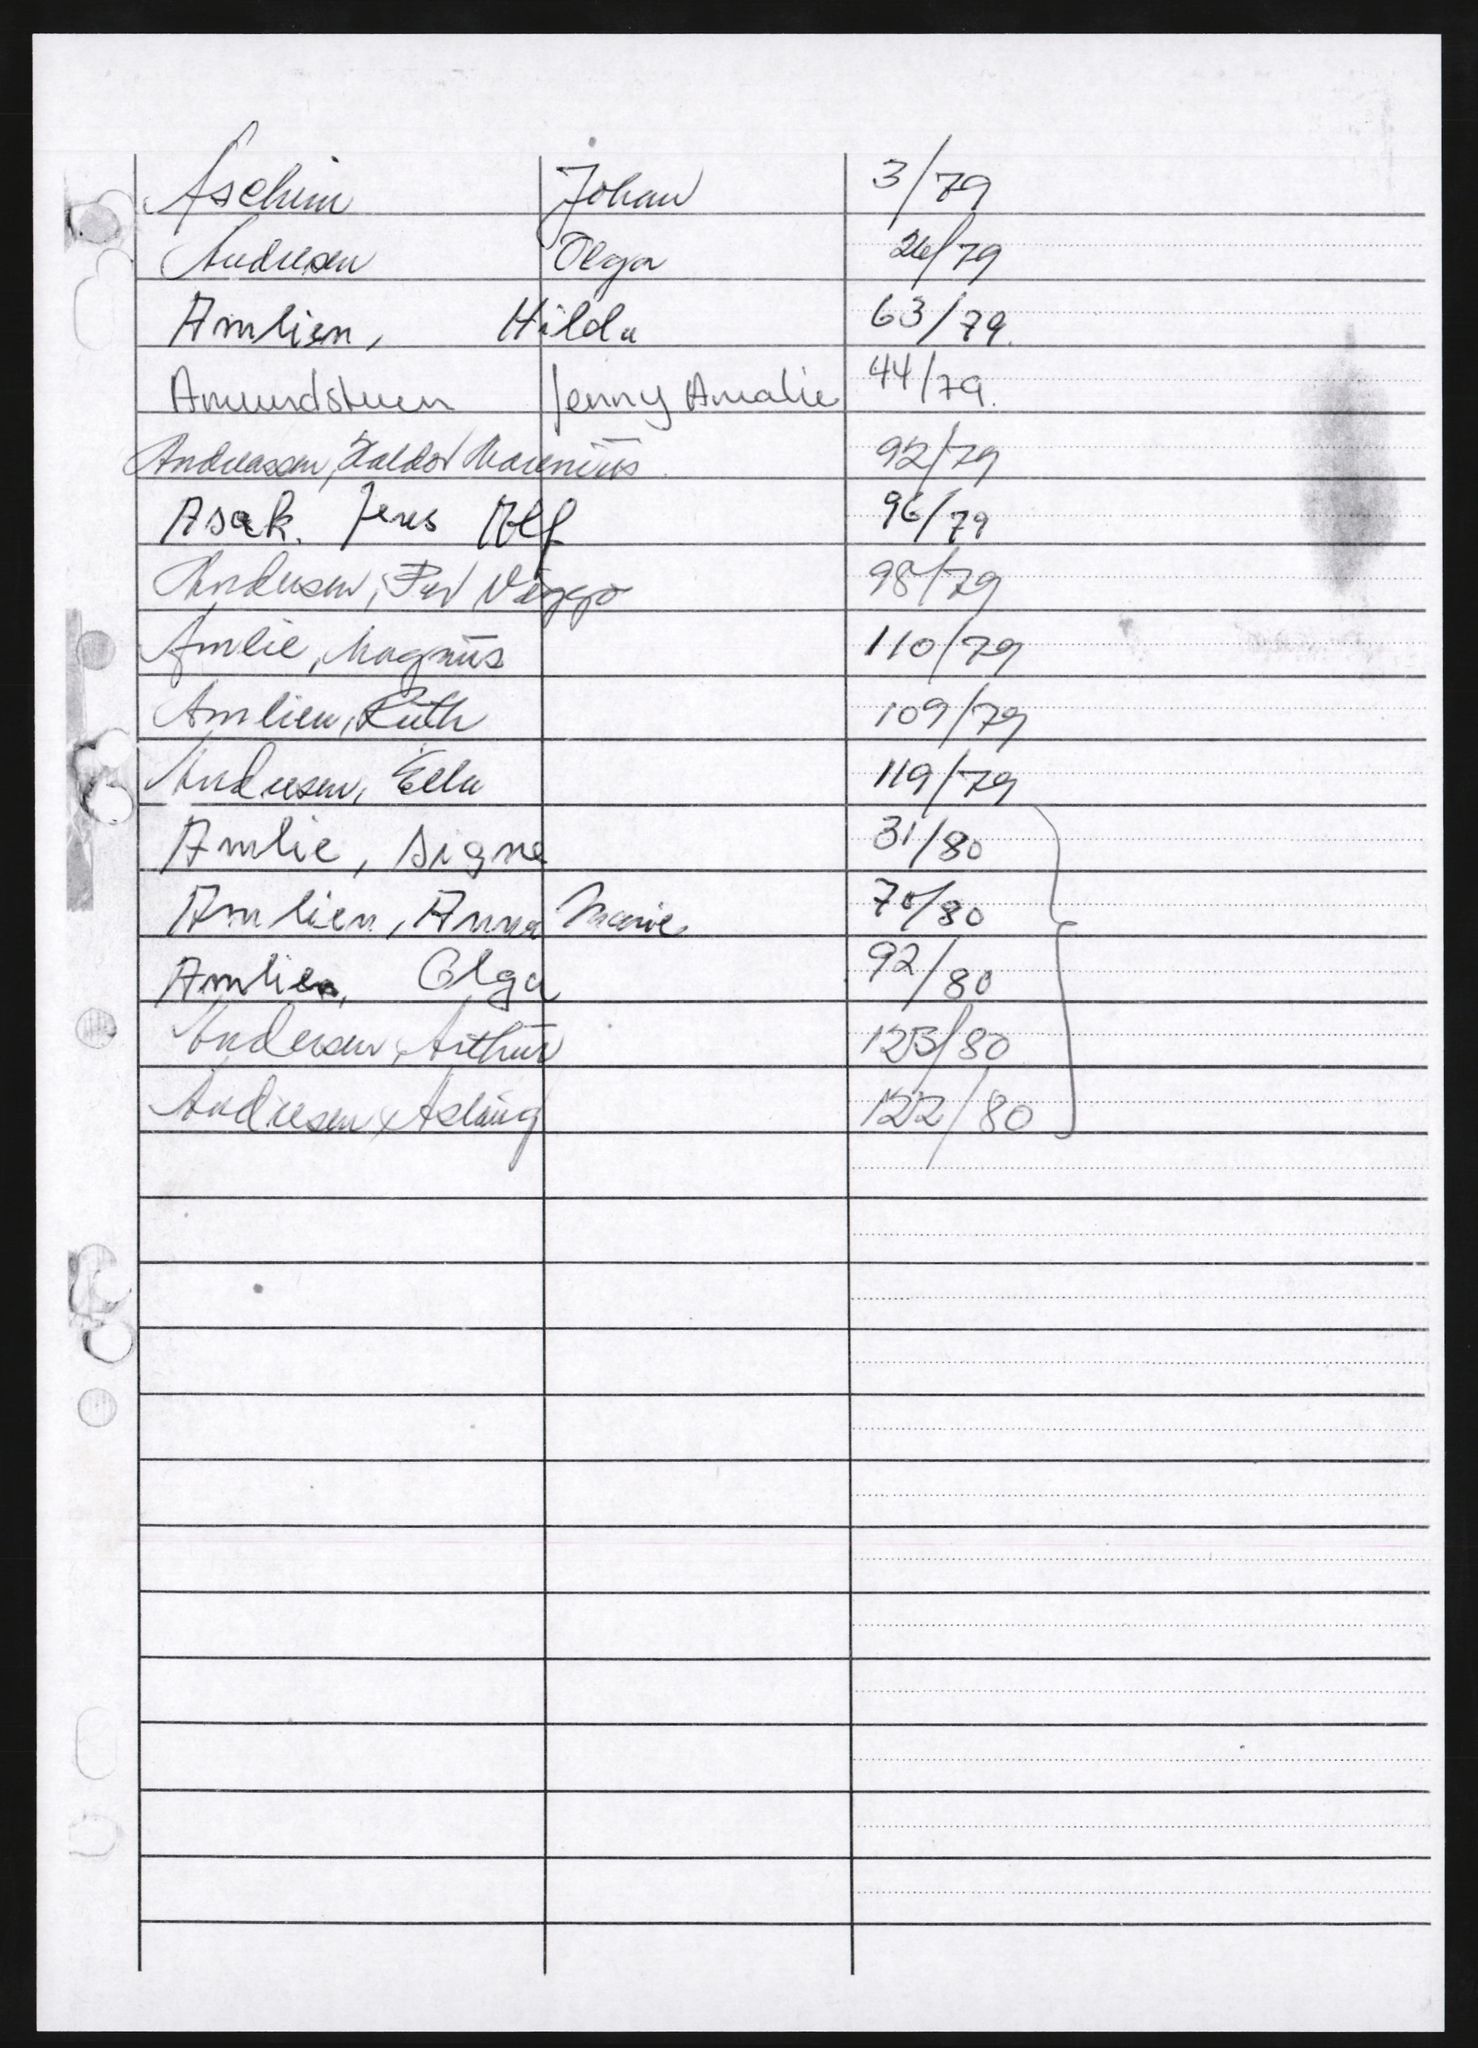 Aschim Johan 3/79
Andresen Olga 26/79
Amlien, Hilda 63/79.
Amundstuen Jenny Amalie 44/79.
Andreassen, Haldor Marenius 92/79
Asak. Jens Rolf 96/79
Andersen, Per Viggo 98/79
Amlie, Magnus 110/79
Amlien, Ruth 109/79
Andresen, Ella 119/79
Amlie, Signe 31/80
Amlien, Anna Marie 70/80
Amlien, Olga 92/80
Andersen, Arthur 123/80
Andresen, Aslaug 122/80